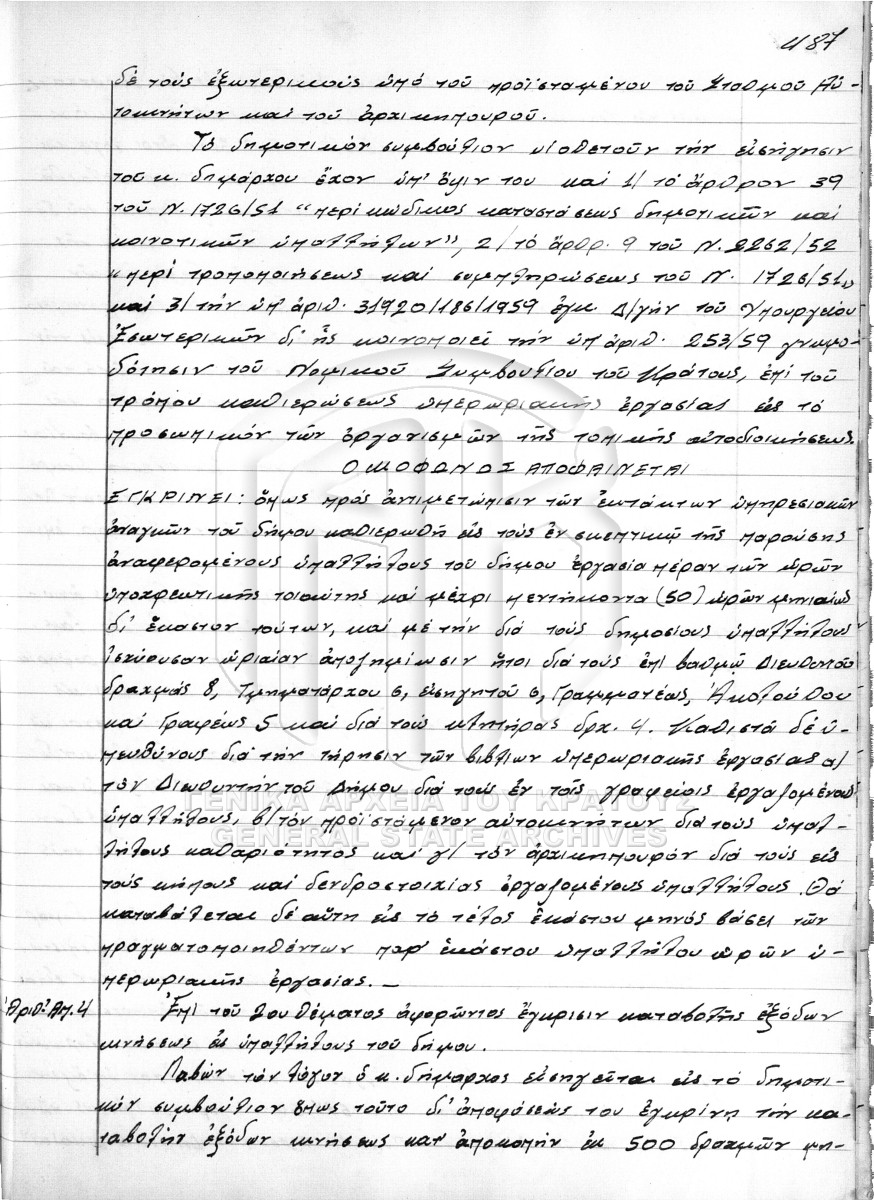 487
δέ τούς ἐξωτερικούς ὑπό τοῦ προϊσταμένου τοῦ Σταθμοῦ Αὐ-
τοκινήτων καί τοῦ ἀρχικηπουροῦ.
Τό δημοτικόν συμβούλιον υἱοθετοῦν τήν εἰσήγησιν
τοῦ κ. δημάρχου ἔχον ὑπ' ὄψιν του καί 1/ τό ἄρθρον 39
τοῦ Ν. 1726/51 "περί κώδικος καταστάσεως δημοτικῶν καί
κοινοτικῶν ὑπαλλήλων", 2/ τό ἄρθρ. 9 τοῦ Ν. 2262/52
"περί τροποποιήσεως καί συμπληρώσεως τοῦ Ν. 1726/51"
καί 3/ τήν ὑπ' ἀριθ. 31920/186/1959 ἐγκ. Δ/γήν τοῦ Ὑπουργείου
Ἐσωτερικῶν δι' ἧς κοινοποιεῖ τήν ὑπ' ἀριθ. 253/59 γνωμο-
δότησιν τοῦ Νομικοῦ Συμβουλίου τοῦ Κράτους, ἐπί τοῦ
τρόπου καθιερώσεως ὑπερωριακῆς ἐργασίας εἰς τό
προσωπικόν τῶν ὀργανισμῶν τῆς τοπικῆς αὐτοδιοικήσεως.
ΟΜΟΦΩΝΩΣ ΑΠΟΦΑΙΝΕΤΑΙ
ΕΓΚΡΙΝΕΙ: ὅπως πρός ἀντιμετώπισιν τῶν ἐκτάκτων ὑπηρεσιακῶν
ἀναγκῶν τοῦ δήμου καθιερωθῆ εἰς τούς ἐν σκεπτικῷ τῆς παρούσης
ἀναφερομένους ὑπαλλήλους τοῦ δήμου ἐργασία πέραν τῶν ὡρῶν
ὑποχρεωτικῆς τοιαύτης καί μέχρι πεντήκοντα (50) ὡρῶν μηνιαίως
δι' ἕκαστον τούτων, καί μέ τήν διά τούς δημοσίους ὑπαλλήλους
ἰσχύουσαν ὡριαίαν ἀποζημίωσιν ἤτοι διά τούς ἐπί βαθμῷ Διευθυντοῦ
δραχμάς 8, Τμηματάρχου 6, εἰσηγητοῦ 6, Γραμματέως, Ἀκολούθου
καί Γραφέως 5 καί διά τούς κλητῆρας δρχ. 4. Καθιστᾶ δέ ὑ-
πευθύνους διά τήν τήρησιν τῶν βιβλίων ὑπερωριακῆς ἐργασίας α/
τόν Διευθυντήν τοῦ Δήμου διά τούς ἐν τοῖς γραφείοις ἐργαζομένους
ὑπαλλήλους, β/ τόν προϊστάμενον αὐτοκινήτων διά τούς ὑπαλ-
λήλους καθαριότητος καί γ/ τόν ἀρχικηπουρόν διά τούς εἰς
τούς κήπους καί δενδροστοιχίας ἐργαζομένους ὑπαλλήλους. Θά
καταβάλεται δέ αὕτη εἰς τό τέλος ἑκάστου μηνός βάσει τῶν
πραγματοποιηθέντων παρ' ἑκάστου ὑπαλλήλου ὡρῶν ὑ-
περωριακῆς ἐργασίας.—
Ἀριθ. Ἀπ. 4 Ἐπί τοῦ 2ου θέματος ἀφορῶντος ἔγκρισιν καταβολῆς ἐξόδων
κινήσεως εἰς ὑπαλλήλους τοῦ δήμου.
Λαβών τόν λόγον ὁ κ. δήμαρχος εἰσηγεῖται εἰς τό δημοτι-
κόν συμβούλιον ὅπως τοῦτο δι' ἀποφάσεώς του ἐγκρίνη τήν κα-
ταβολήν ἐξόδων κινήσεως κατ' ἀποκοπήν ἐκ 500 δραχμῶν μη-
ΓΕΝΙΚΑ ΑΡΧΕΙΑ ΤΟΥ ΚΡΑΤΟΥΣ
GENERAL STATE ARCHIVES